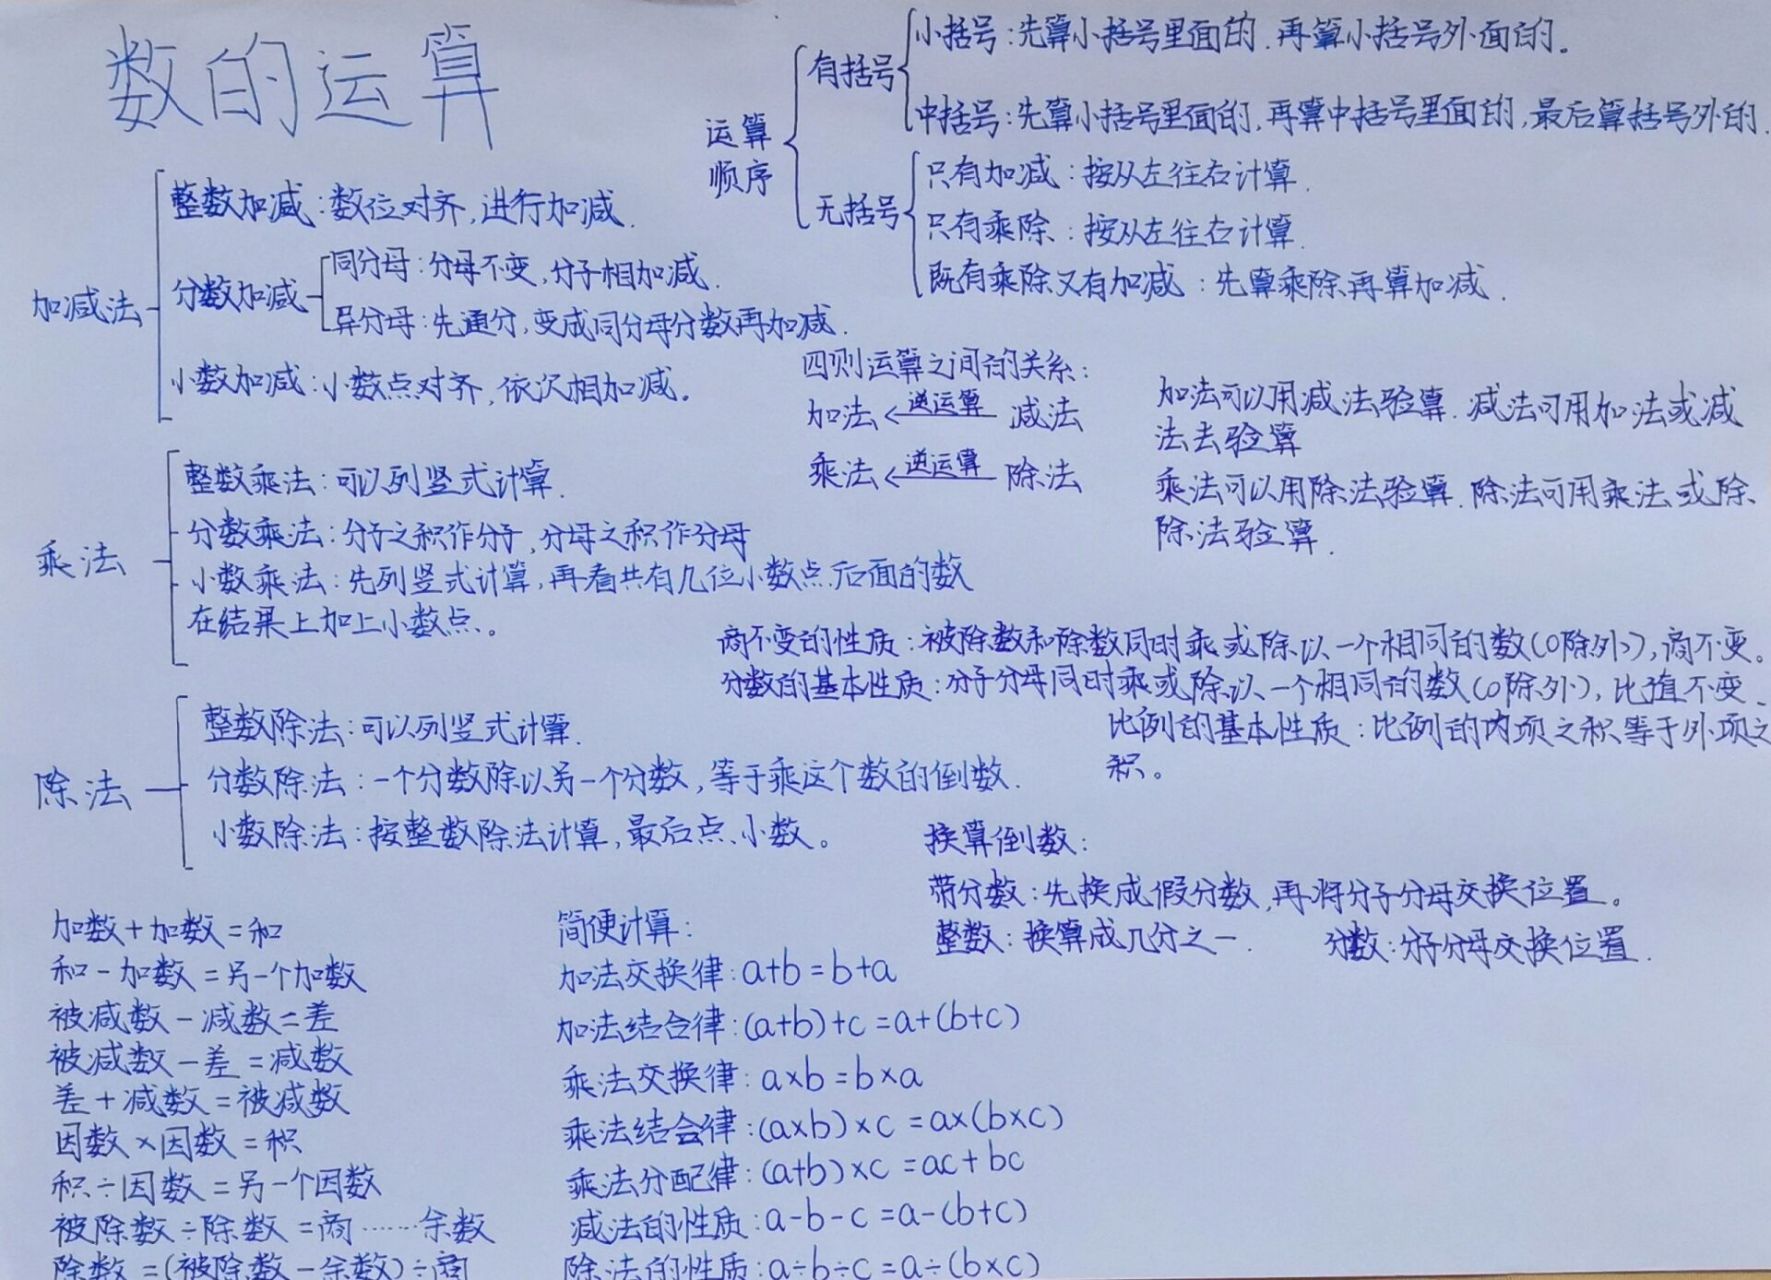 数的运算
运算顺序
有括号
小括号:先算小括号里面的.再算小括号外面的。
中括号:先算小括号里面的,再算中括号里面的,最后算括号外的.
无括号
只有加减:按从左往右计算.
只有乘除:按从左往右计算.
既有乘除又有加减:先算乘除再算加减.
加减法
整数加减:数位对齐,进行加减.
分数加减
同分母:分母不变,分子相加减.
异分母:先通分,变成同分母分数再加减.
小数加减:小数点对齐,依次相加减。
四则运算之间的关系:
加法 ←逆运算 减法
乘法 ←逆运算 除法
加法可以用减法验算.减法可用加法或减
法去验算
乘法可以用除法验算.除法可用乘法或除
除法验算.
乘法
整数乘法:可以列竖式计算.
分数乘法:分子之积作分子,分母之积作分母
小数乘法:先列竖式计算,再看共有几位小数点后面的数
在结果上加上小数点。
商不变的性质:被除数和除数同时乘或除以一个相同的数(0除外),商不变。
分数的基本性质:分子分母同时乘或除以一个相同的数(0除外),比值不变.
比例的基本性质:比例的内项之积等于外项之
积。
除法
整数除法:可以列竖式计算.
分数除法:一个分数除以另一个分数,等于乘这个数的倒数.
小数除法:按整数除法计算,最后点小数。
换算倒数:
带分数:先换成假分数,再将分子分母交换位置。
整数:换算成几分之一.
分数:分子分母交换位置.
加数+加数=和
和-加数=另一个加数
被减数-减数=差
被减数-差=减数
差+减数=被减数
因数×因数=积
积÷因数=另一个因数
被除数÷除数=商……余数
除数=(被除数-余数)÷商
简便计算:
加法交换律:a+b=b+a
加法结合律:(a+b)+c=a+(b+c)
乘法交换律:a×b=b×a
乘法结合律:(a×b)×c=a×(b×c)
乘法分配律:(a+b)×c=ac+bc
减法的性质:a-b-c=a-(b+c)
除法的性质:a÷b÷c=a÷(b×c)